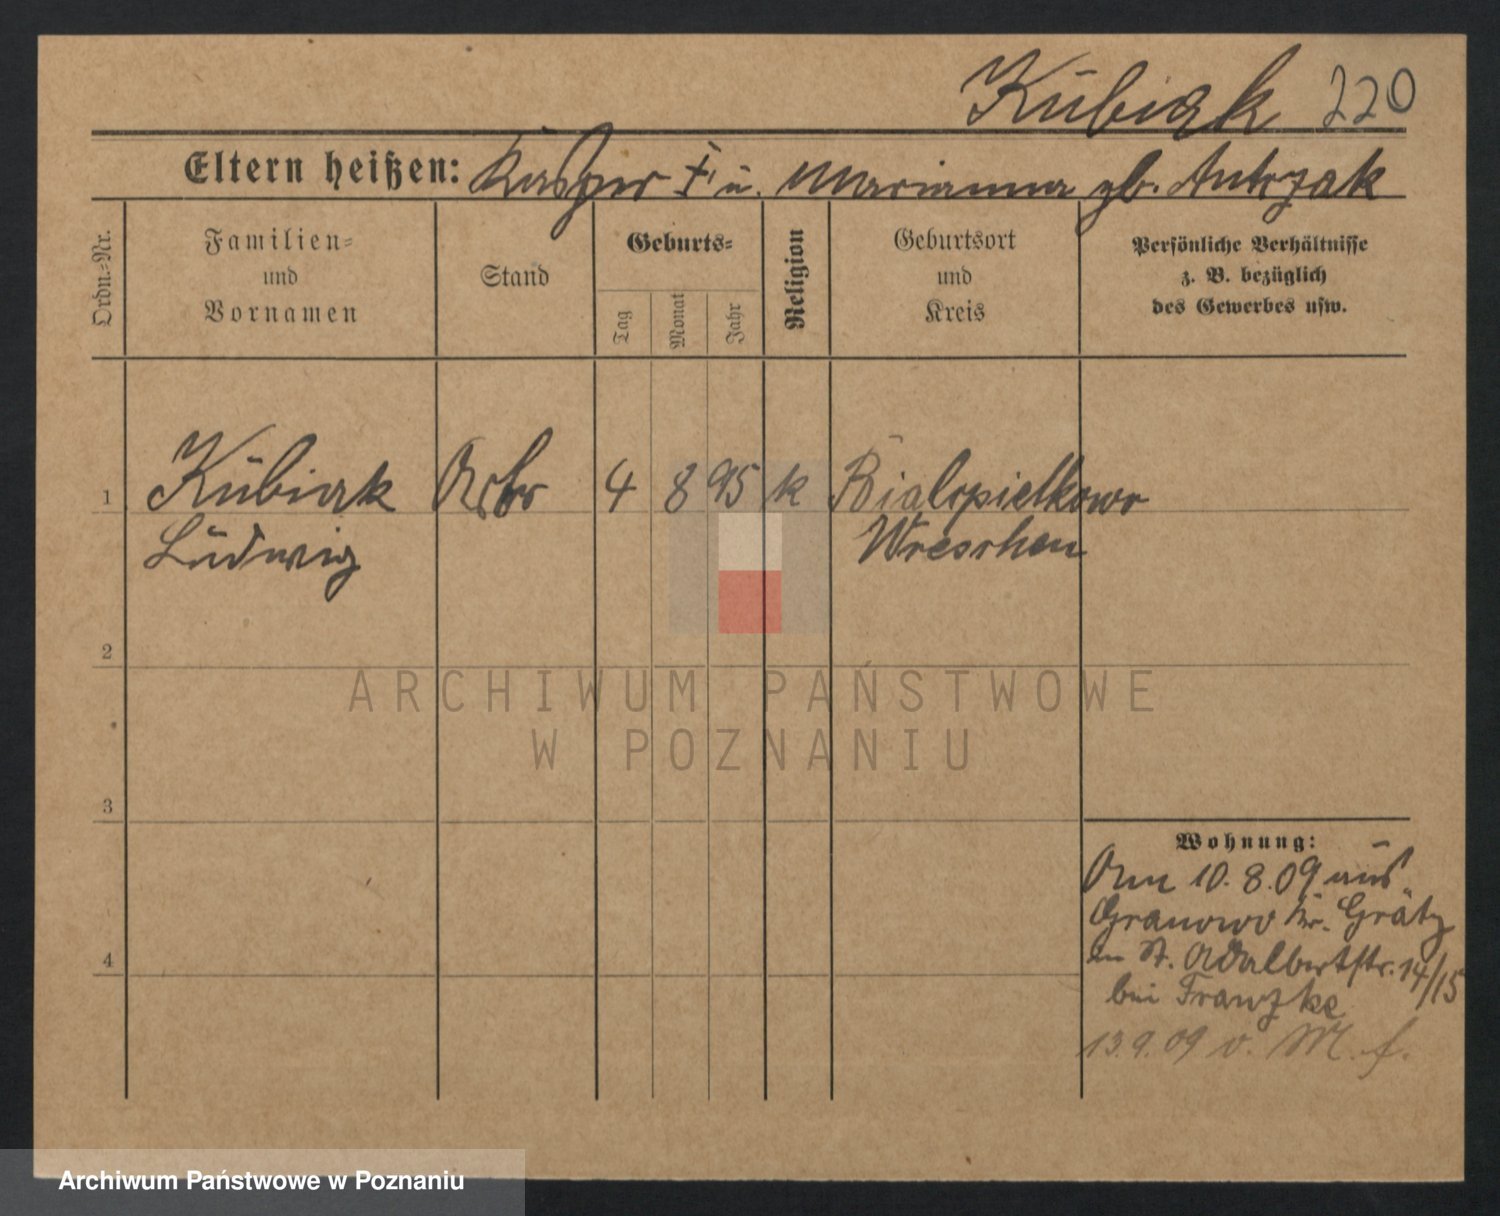 Kubiak 220
Eltern heißen: Kasper † u. Marianna gb. Antczak
Ordn.-Nr.
Familien-
und
Vornamen
Stand
Geburts-
Tag
Monat
Jahr
Religion
Geburtsort
und
Kreis
Persönliche Verhältnisse
z. B. bezüglich
des Gewerbes usw.
1 Kubiak Arb. 4 8 95 k Bialopietkowo
Ludwig Wreschen
2
ARCHIWUM PAŃSTWOWE
W POZNANIU
3
Wohnung:
Am 10.8.09 aus
Granowo Kr. Grätz
St. Adalbertstr. 14/15
bei Franzke
4
13.9.09 v. M. f.
Archiwum Państwowe w Poznaniu